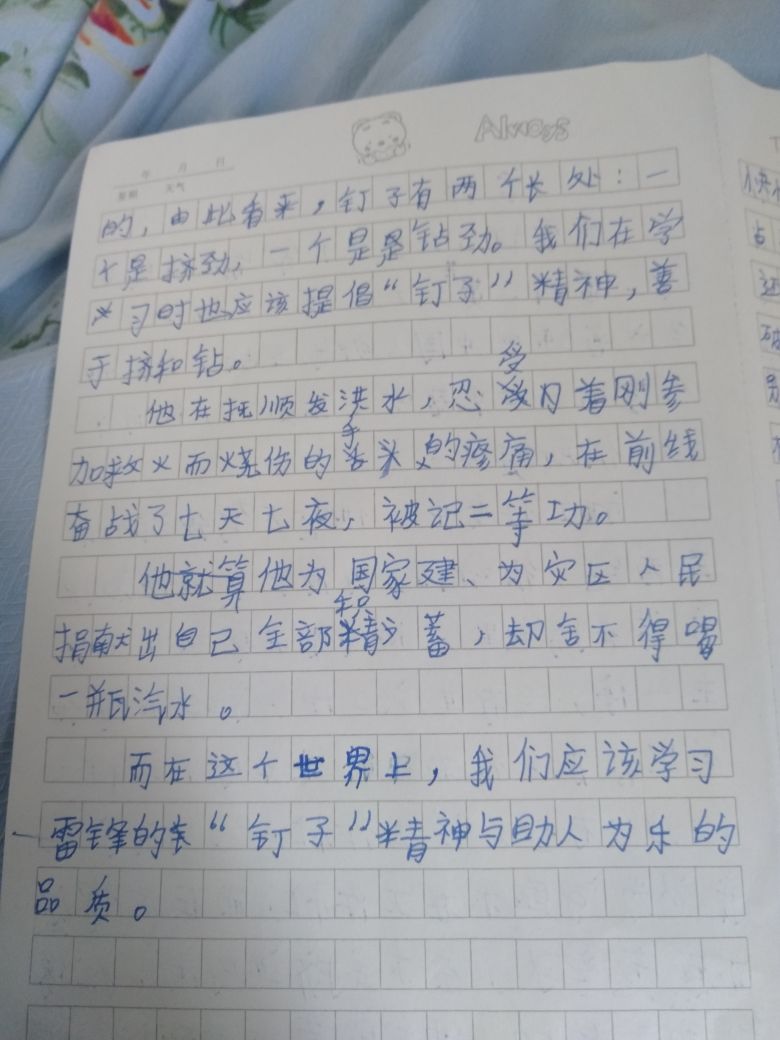 Always
年 月 日
星期 天气
的，由此看来，钉子有两个长处：一
个是挤劲，一个是是钻劲。我们在学
习时也应该提倡“钉子”精神，善
于挤和钻。
他在抚顺发洪水，忍受着刚参
加救火而烧伤的手的疼痛，在前线
奋战了七天七夜，被记二等功。
他就算他为国家建、为灾区人民
捐献出自己全部积蓄，却舍不得喝
一瓶汽水。
而在这个世界上，我们应该学习
雷锋的“钉子”精神与助人为乐的
品质。